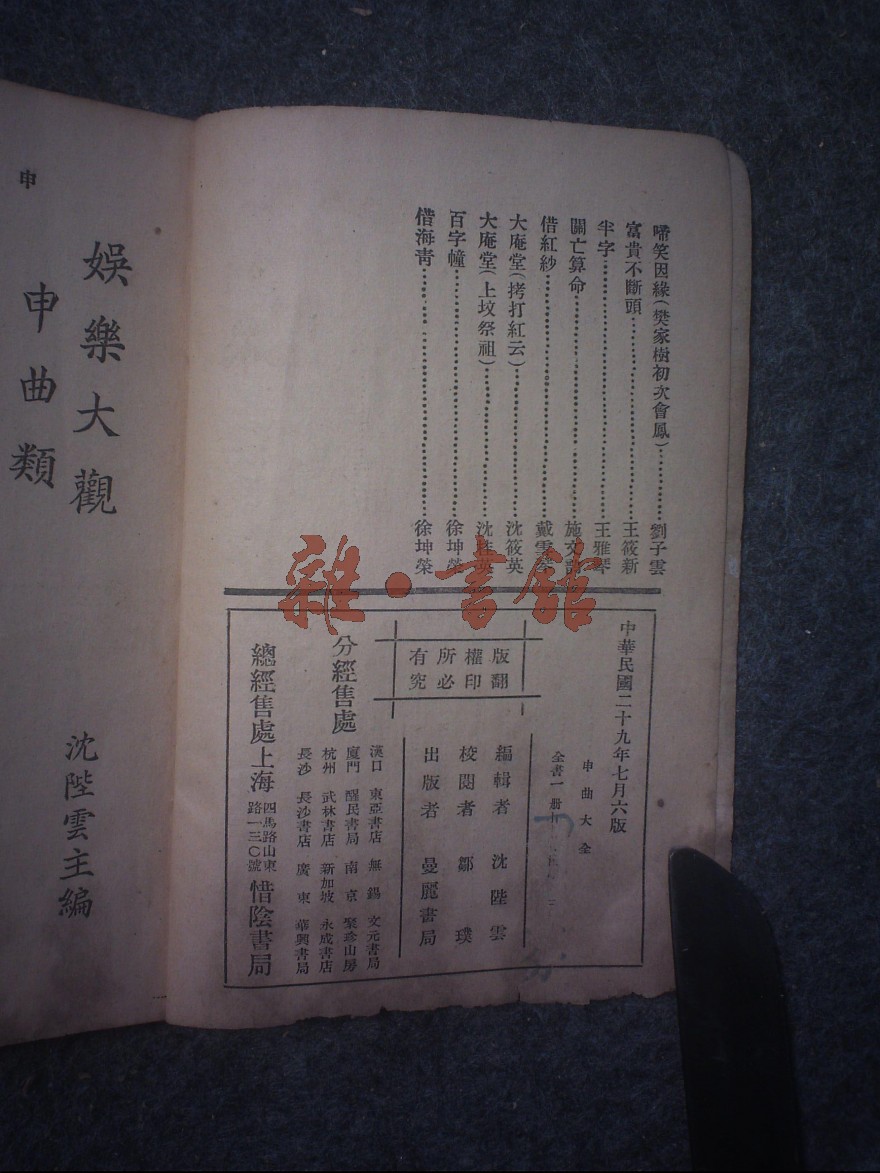 啼笑因緣(樊家樹初次會鳳)…………劉子雲
富貴不斷頭…………王筱新
半字…………王雅琴
關亡算命…………施文
借紅紗…………戴雲
大庵堂(拷打紅云)…………沈筱英
大庵堂(上坟祭祖)…………沈 英
百字幢…………徐坤榮
借海青…………徐坤榮
中華民國二十九年七月六版
申曲大全
全書一册
編輯者 沈陛雲
校閱者 鄒璞
出版者 曼麗書局
版權所有
翻印必究
分經售處
漢口 東亞書店 無錫 文元書局
廈門 醒民書局 南京 聚珍山房
杭州 武林書店 新加坡 永成書店
長沙 長沙書店 廣東 華興書局
總經售處上海四馬路山東路一三〇號惜陰書局
申
娛樂大觀
申曲類
沈陛雲主編
雜·書館